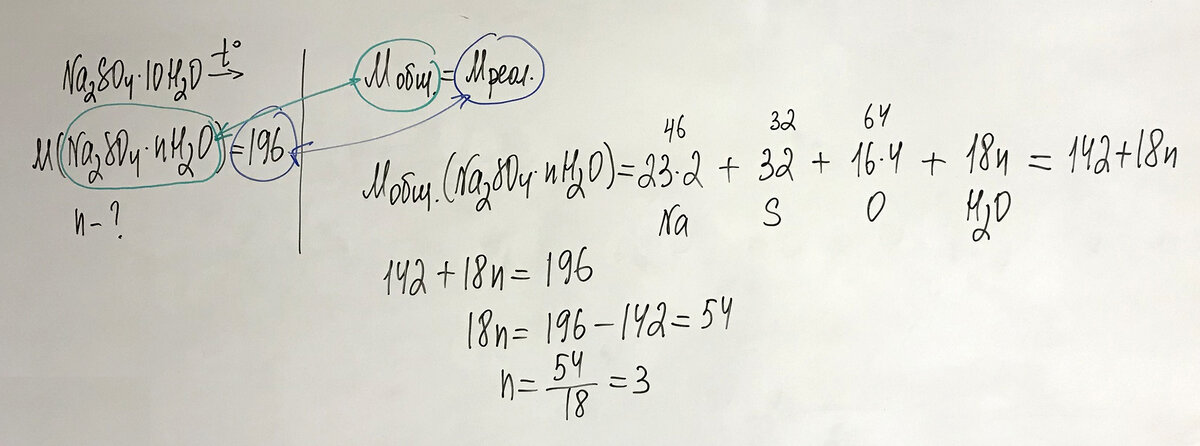 Na₂SO₄·10H₂O t°→
M(Na₂SO₄·nH₂O)=196
n-?
Mобщ.=Mреал.
46 32 64
Mобщ.(Na₂SO₄·nH₂O)=23·2 + 32 + 16·4 + 18n = 142+18n
Na S O H₂O
142+18n=196
18n=196-142=54
n=54/18=3